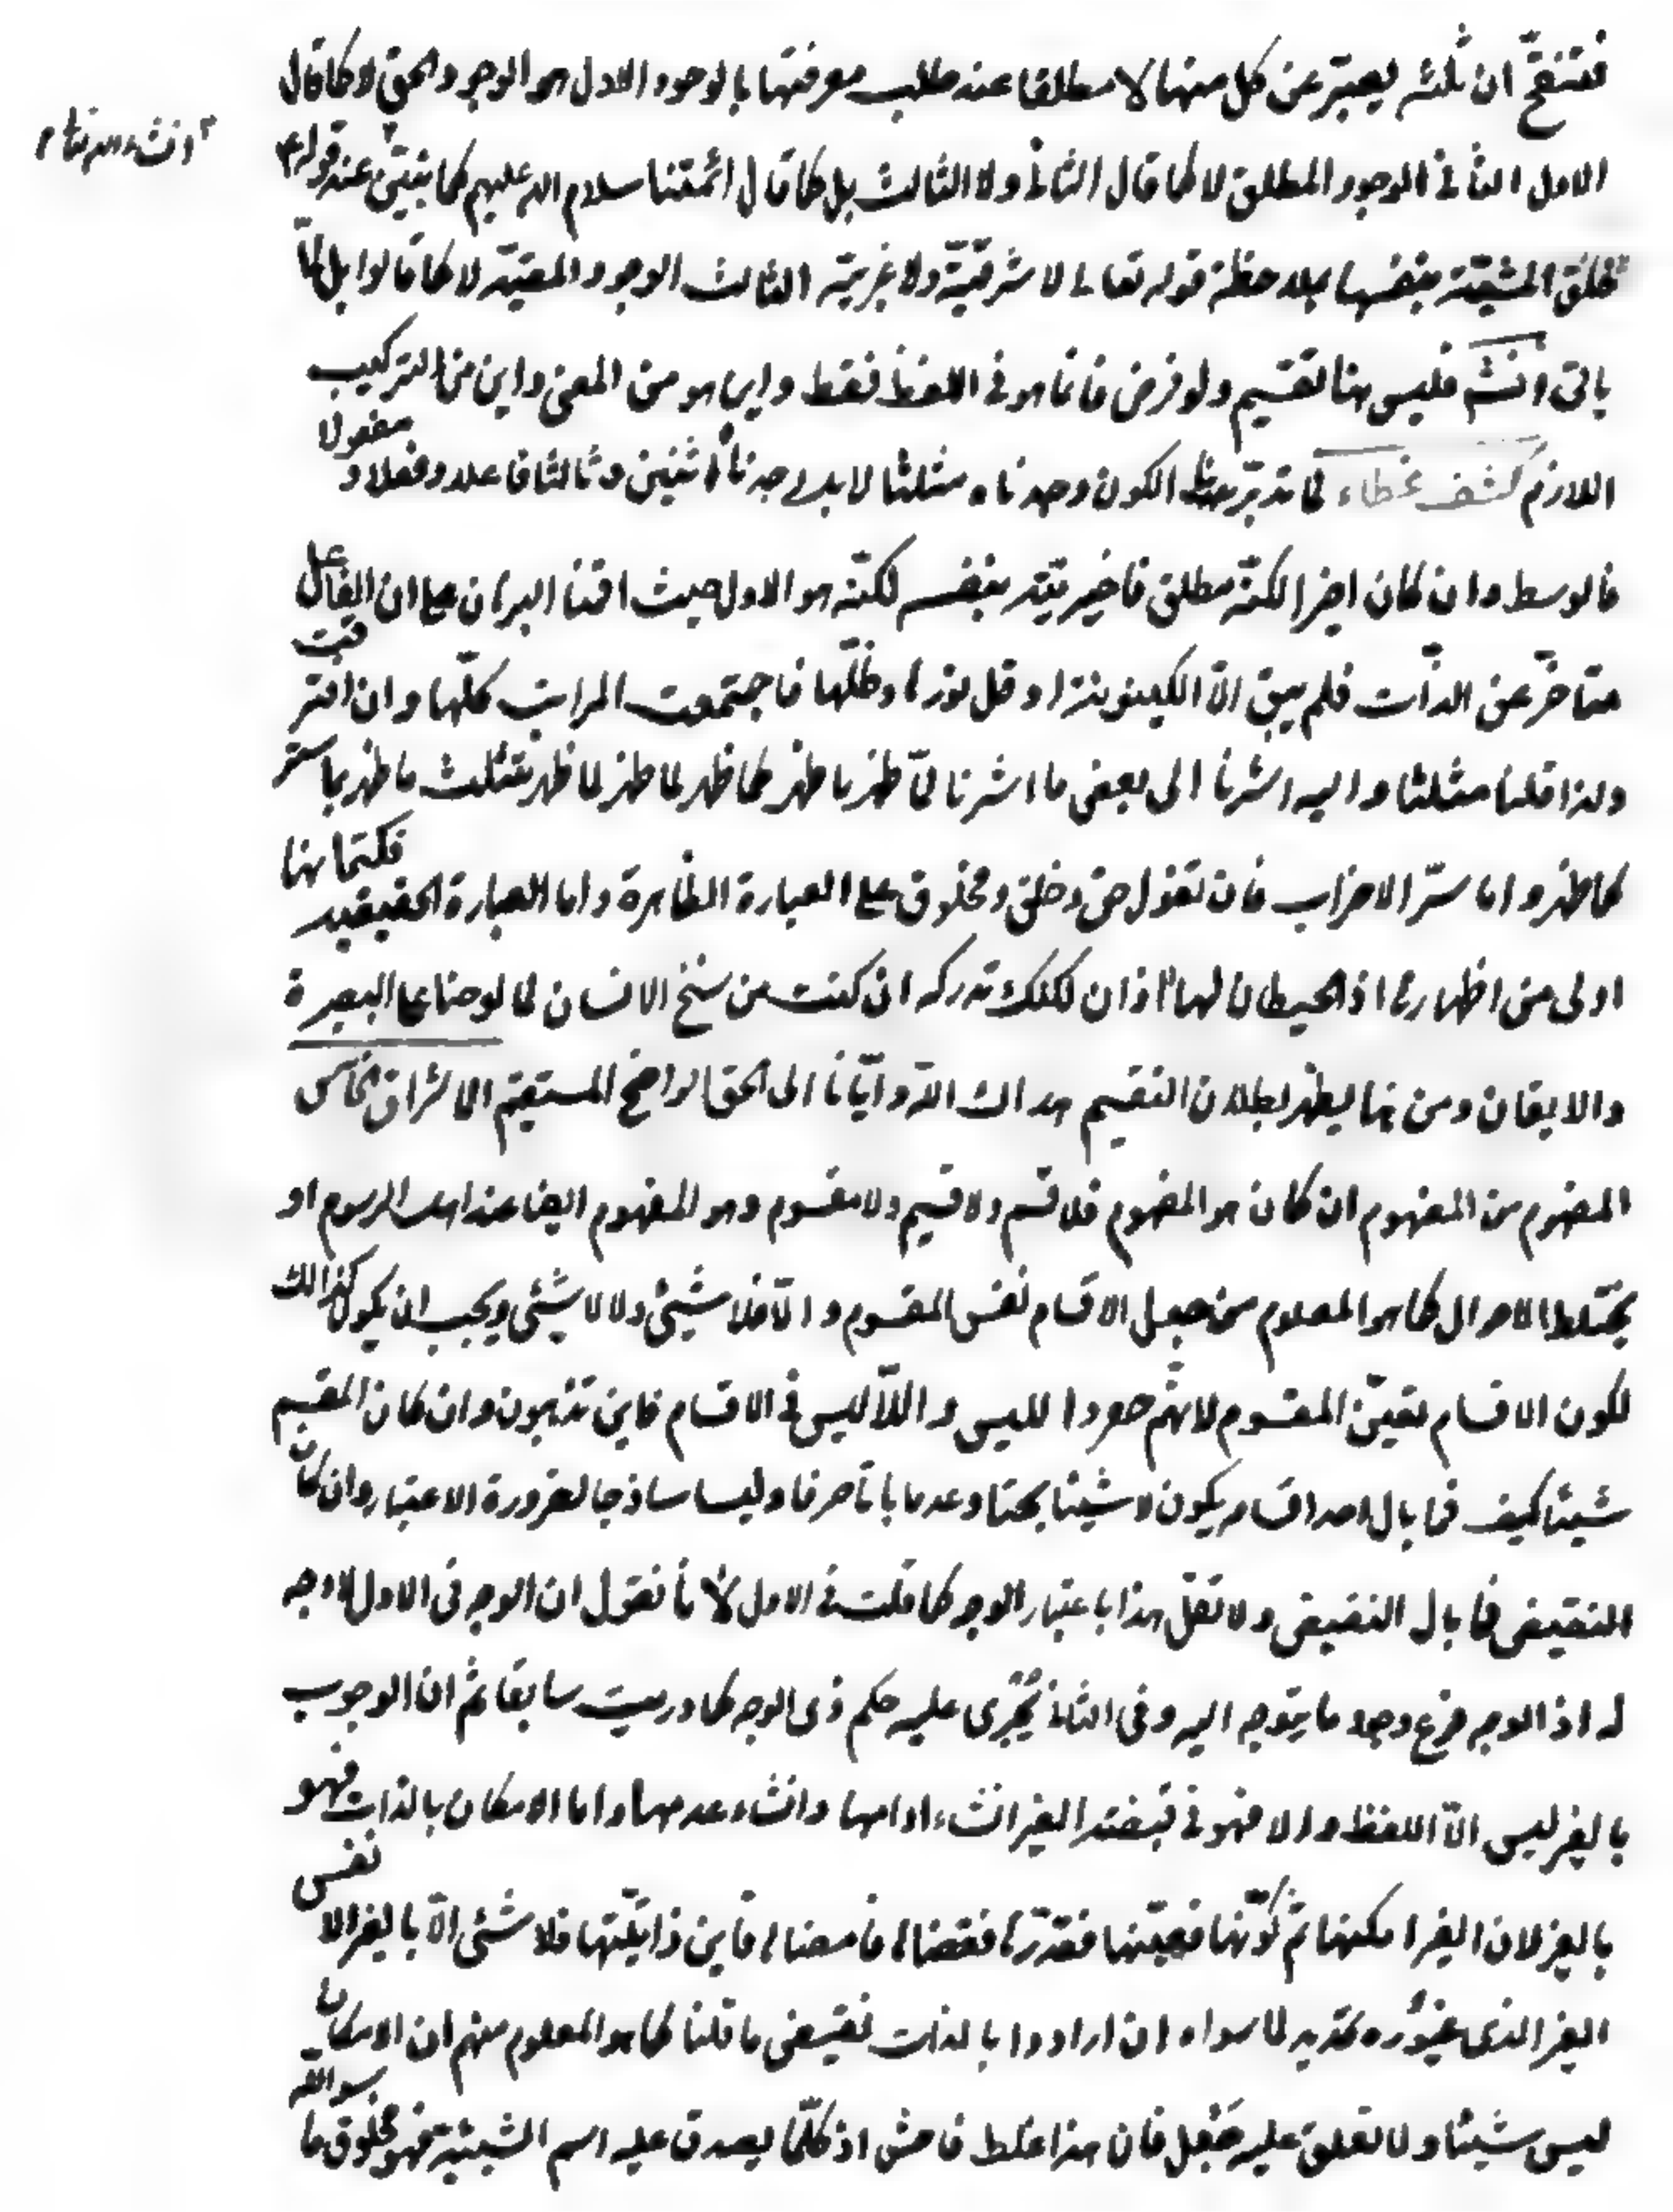 فتنقّح ان ثلثه يعبّر عن كل منها لا مطلقا عند طلب معرفتها بالوجود الاول هو الوجود الحق لا كما قال
الاول الثاني الوجود المطلق لا كما قال الثاني ولا الثالث بل كما قال ائمتنا سلام الله عليهم كما يتبيّن عند قولهم
انشاء الله
خلق المشيّة بنفسها بملاحظة قوله تعالى لا شرقيّة ولا غربيّة الثالث الوجود المقيّد لا كما قالوا بل كما
ياتي انشـ فليس هنا تقسيم ولو فرض فانما هو في اللفظ فقط واين هو من المعنى واين من التركيب
اللازم كشف غطاء لما تدبّرنا الكون وجدناه مثلثا لا بل وجدناه اثنين وثالثا فاعلا وفعلا و مفعولا
فالوسط وان كان اخيرا لكنّه مطلق فاخيريّته بنفسه لكنّه هو الاول حيث اقمنا البرهان على ان الفاعل
متأخر عن الذات فلم يبق الّا الكينونة او قل نورها وظلّها فاجتمعت المراتب كلّها وان افترقت
ولذا قلنا مثلثا واليه اشرنا الى بعض ما اشرنا لمّا ظهر ما ظهر كما ظهر لما ظهر لما ظهر فتثلث ما ظهر بما ستر
كما ظهر واما سرّ الاحزاب فان تقول حق وخلق ومخلوق على العبارة الظاهرة واما العبارة الحقيقيه فكتمانها
اولى من اظهارها اذ الحيطان لها اذان لكنك تدركه ان كنت من سنخ الانسان لما لوحنا على البصيرة
والايقان ومن هنا يظهر بطلان التقسيم هداك الله وايّانا الى الحق الواضح المستقيم الاشراق الخامس
المفهوم من المفهوم ان كان هو المفهوم فلا قسم ولا قسيم ولا مقسوم وهو المفهوم ايضا عند اهل الرسوم او
يختلط الاحوال كما هو المعلوم من جعل الاقسام نفس المقسوم والّا فلا شيئ ولا لا شيئ ويجب ان يكون كذالك
لكون الاقسام تعيّن المقسوم لانهم جعلوا الليس واللّا ليس في الاقسام فاين تذهبون وان كان المقسم
شيئا كيف فما بال احد اقسامه يكون لا شيئا بحتا وعدما باتا صرفا وليسا ساذجا لضرورة الاعتبار وان كان
النقيض فما بال النقيض ولا تقل هذا باعتبار الوجه كما قلت في الاول لانا نقول ان الوجه في الاول لا وجه
له اذ الوجه فرع وجود ما يتوجه اليه وفي الثاني يُجْرى عليه حكم ذى الوجه كما دريت سابقا ثم ان الوجوب
بالغير ليس الّا اللفظ والا فهو في قبضة الغير ان شاء ادامها وان شاء عدمها واما الامكان بالذات فهو
بالغير لان الغير امكنها ثم كوّنها فعيّنها فقدّرها فقضاها فامضاها فاين ذاتيّتها فلا شئ الّا بالغير الا نفس
الغير الذى غيّوره تحديد لما سواه ان ارادوا بالذات نقيض ما قلنا كما هو المعلوم منهم ان الامكان
ليس شيئا ولا تعلق عليه جَعْل فان هذا غلط فاحش اذ كلّما يصدق عليه اسم الشيئية فهو مخلوق ما سوالله